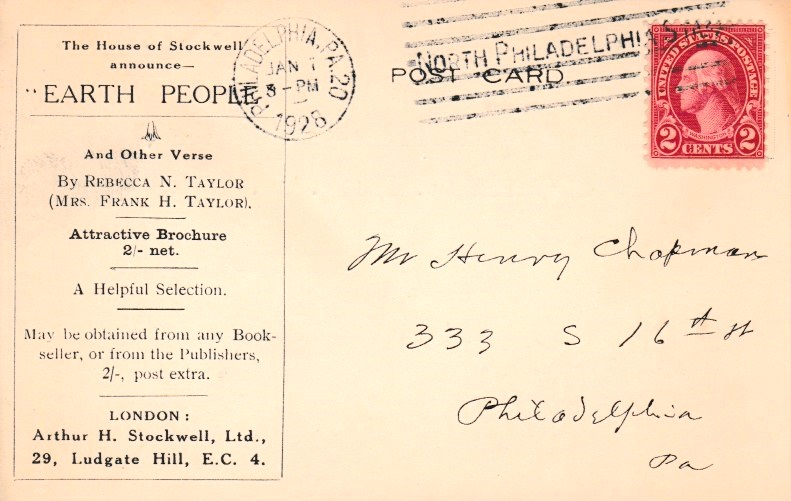 The House of Stockwell
announce—
"EARTH PEOPLE
And Other Verse
By REBECCA N. TAYLOR
(MRS. FRANK H. TAYLOR).
Attractive Brochure
2/- net.
A Helpful Selection.
May be obtained from any Book-
seller, or from the Publishers,
2/-, post extra.
LONDON:
Arthur H. Stockwell, Ltd.,
29, Ludgate Hill, E.C. 4.
PHILADELPHIA, PA. 20
JAN
PM
NORTH PHILADELPHIA STA.
POST CARD
UNITED STATES POSTAGE
WASHINGTON
2 CENTS 2
Mr Henry Chapman
333 S 16th st
Philadelphia
Pa